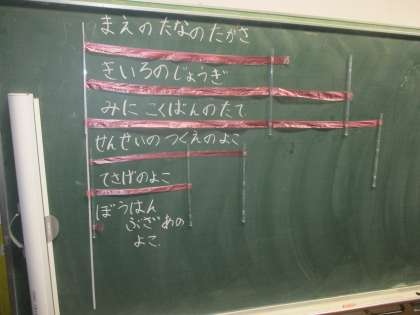 まえのたなのたかさ
きいろのじょうぎ
みにこくばんのたて
せんせいのつくえのよこ
てさげのよこ
ぼうはん
ぶざあの
よこ